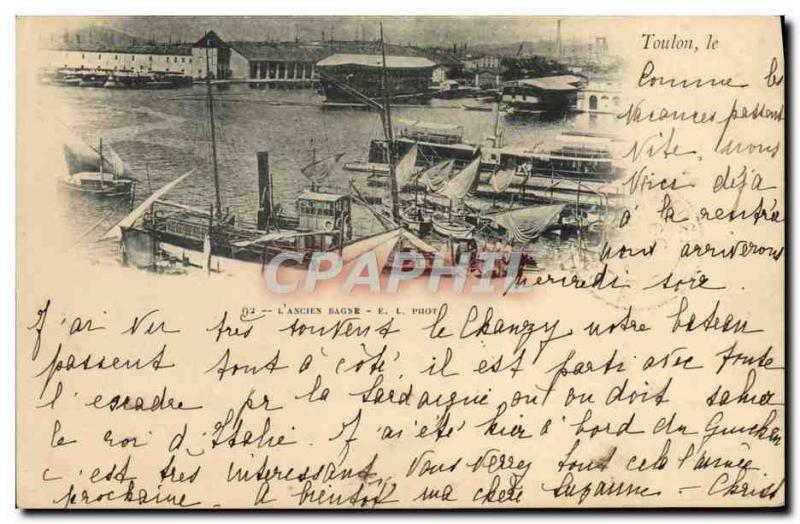 Toulon, le
Comme les
vacances passent
vite, nous
voici déjà
à la rentrée
nous arriverons
mercredi soir.
CPAPHIL
92 -- L'ANCIEN BAGNE - E. L. PHOT
J'ai vu très souvent le Chanzy notre bateau
passent tout à côté, il est parti avec toute
l'escadre pr la Sardaigne où on doit saluer
le roi d'Italie. J'ai été hier à bord du Guichen
c'est très interessant, vous verrez tout cela l'année
prochaine. A bientôt ma chère Suzanne - Christ